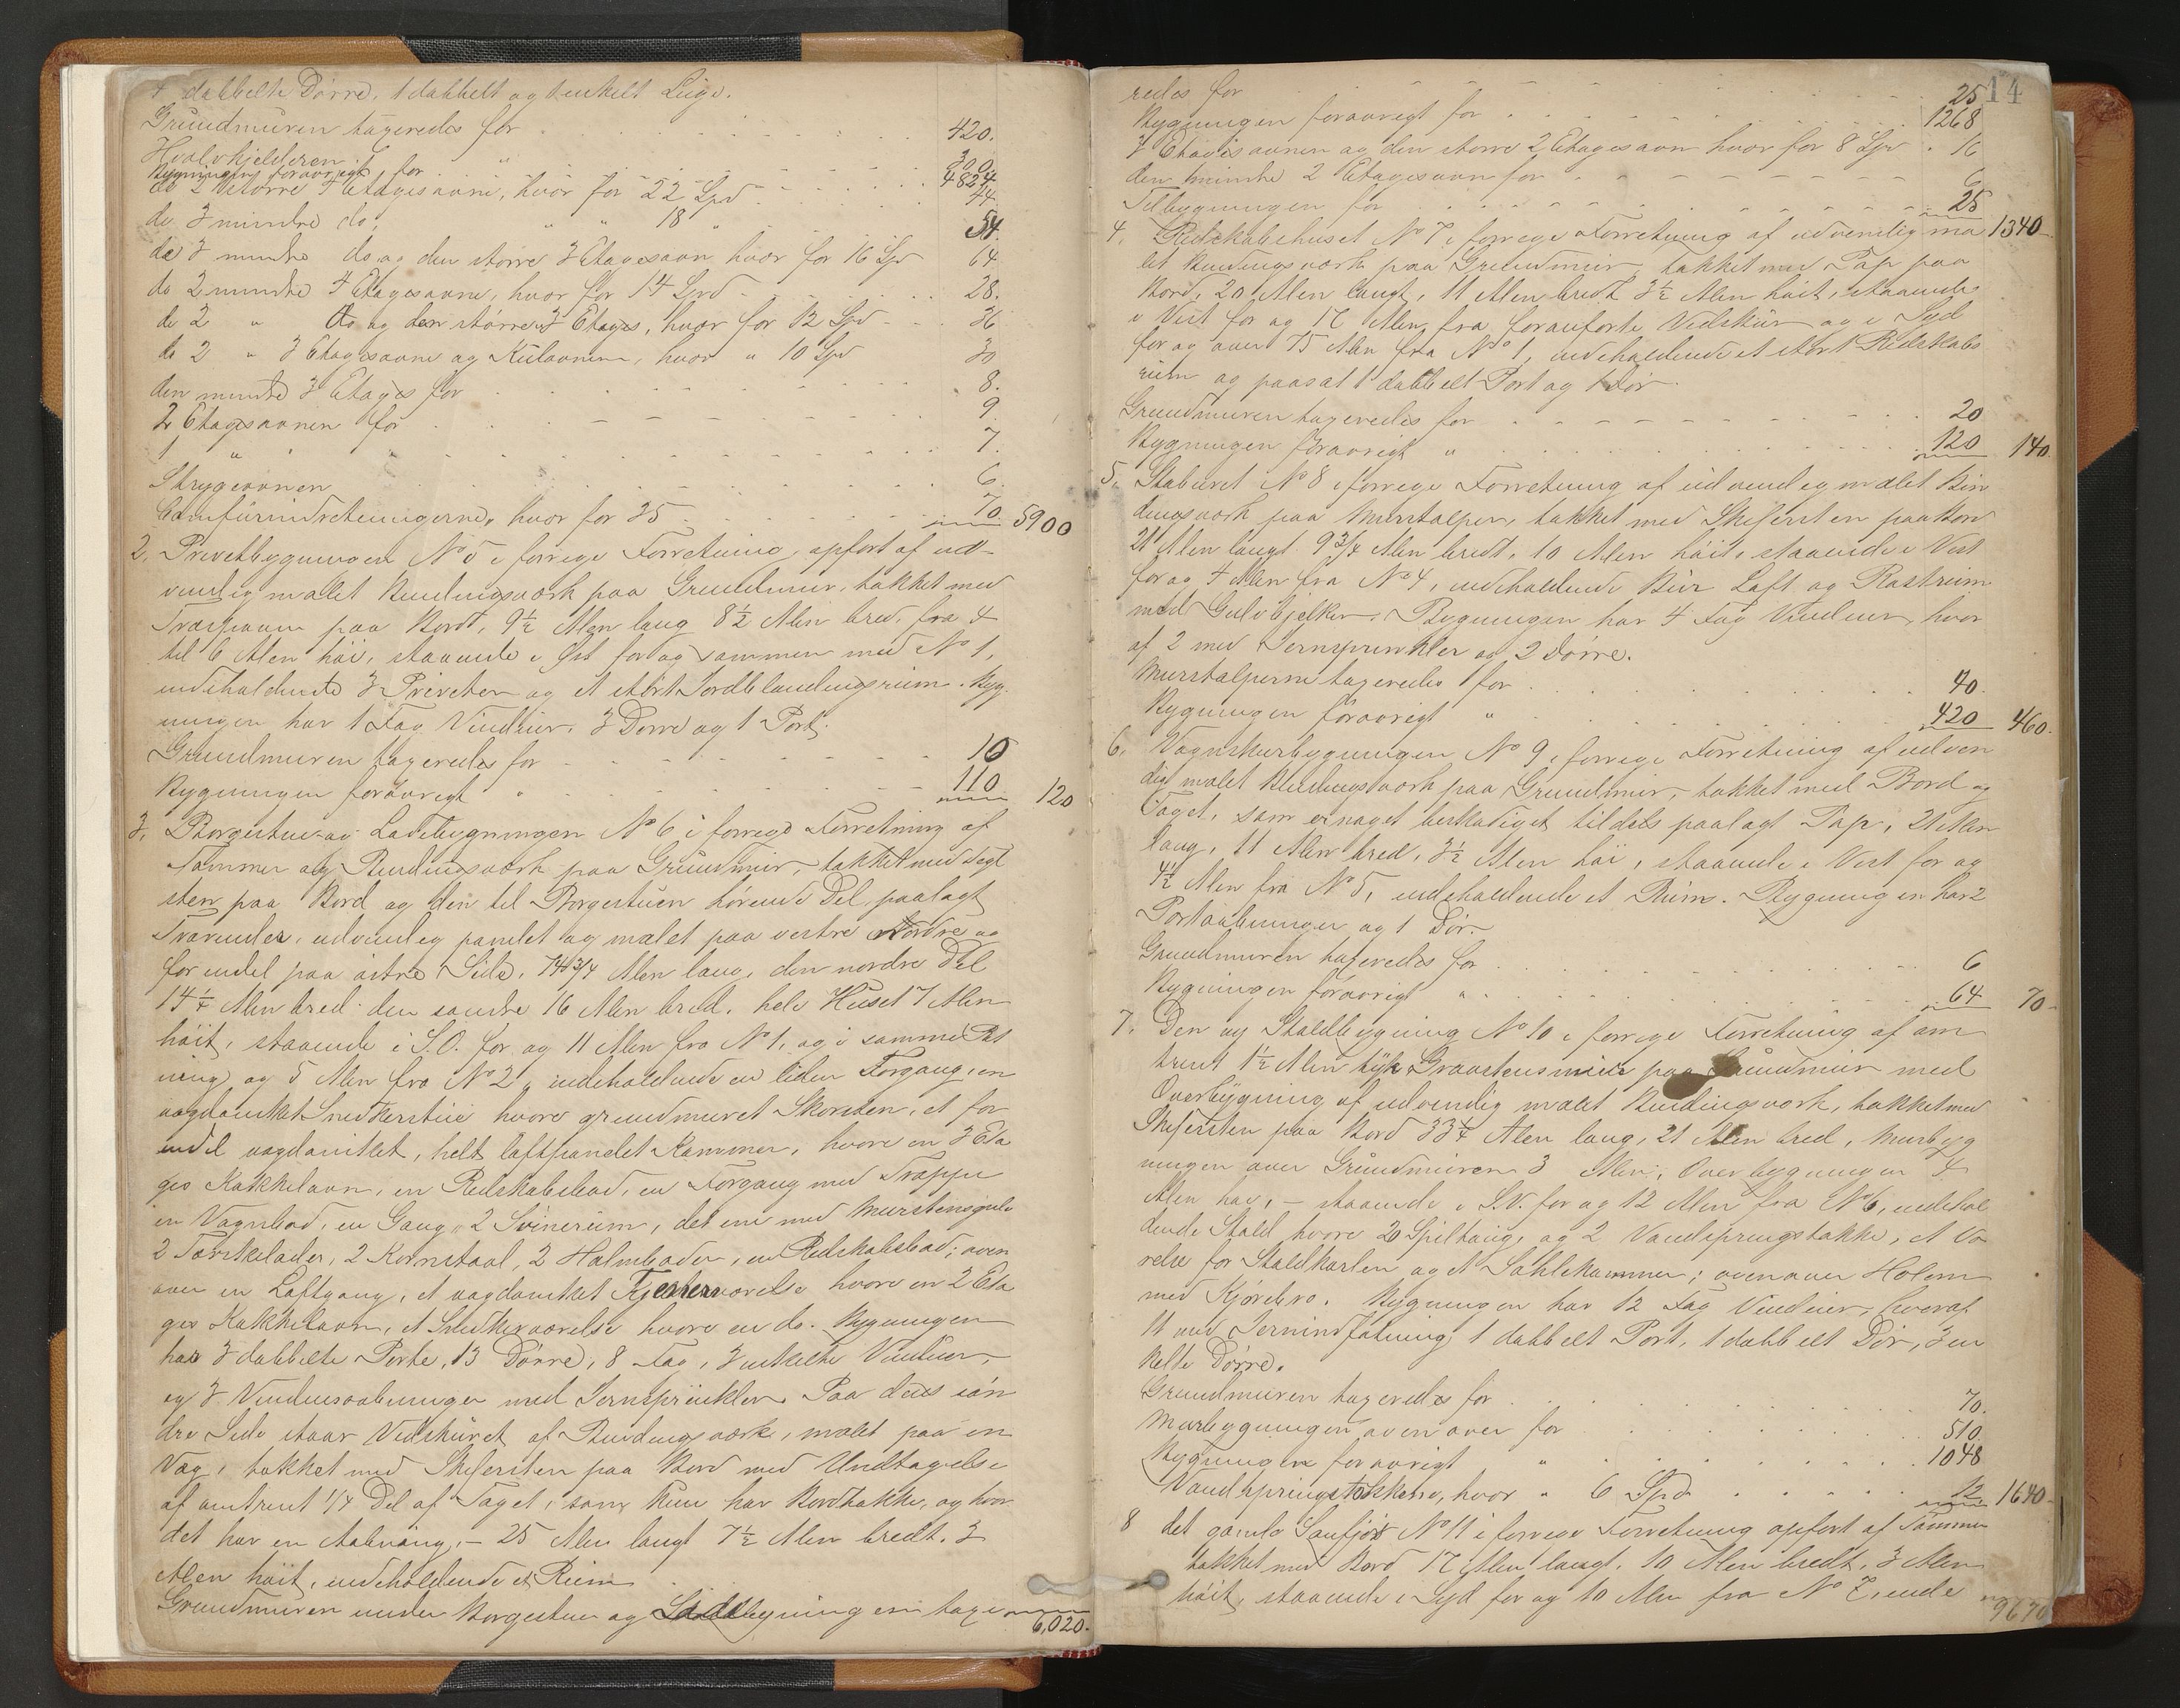 4 dobbelte Dørre, 1 dobbelt og 1 enkelt Luge.
Grundmuren taxeredes for 420.
Hvælvkjelderen " 300
Bygningen forøvrigt for 4824
de 2 større 4 Etagesovne, hvor for 22 Spd 44.
de 3 mindre do. " 18 " 54.
de 3 mindre do. og den større 3 Etagesovn hvor for 16 Spd 64
de 2 mindre 4 Etagesovne, hvor for 14 Spd 28.
de 2 " do og den større 3 Etages, hvor for 12 Spd 36
de 2 " 3 Etagesovne og Kulovnen, hvor " 10 Spd 30
den mindre 3 Etages for 8.
2 Etagesovnen for 9.
1 " " 7.
Strygeovnen 6.
Comfurindretningerne, hvor for 35 70 5900
2. Privetbygningen No 5 i forrige Forretning opført af ud-
vendig malet Bindingsværk paa Grundmur, tækket med
Træspaan paa Bord, 9½ Alen lang 8½ Alen bred, fra 4
til 6 Alen høi, staaende i Øst for og sammen med No 1,
indeholdende 3 Priveter og et stort Jordblandingsrum. Byg-
ningen har 1 Fag Vinduer, 3 Dørre og 1 Port.
Grundmuren taxeredes for 10
Bygningen forøvrigt " 110 120
3. Borgestue- og Ladebygningen No 6 i forrige Forretning af
Tømmer og Bindingsværk paa Grundmur, tækket med Tegl
sten paa Bord og den til Borgestuen hørende Del paalagt
Trærender, udvendig panelet og malet paa vestre Nordre og
for endel paa østre Side, 74¾ Alen lang, den nordre Del
14¼ Alen bred den søndre 16 Alen bred, hele Huset 7 Alen
høit, staaende i S.O. for og 11 Alen fra No 1, og i samme Ret
ning og 5 Alen fra No 2, indeholdende en liden Forgang, en
uogdanket Snedkerstue hvore grundmuret Skorsten, et for
endel uogdanket, helt loftpanelet Kammer, hvore en 3 Eta
ges Kakkelovn, en Redskabsbod, en Forgang med Trappe
en Vognbod, en Gang, 2 Svinerum, det ene med Murstensgulv
2 Tærskelader, 2 Kornstaal, 2 Halmboder, en Redskabsbod; oven
over en Loftgang, et uogdanket Tjenerværelse hvore en 2 Eta
ges Kakkelovn, et Snedkerværelse hvore en do. Bygningen
har 3 dobbelte Porte, 13 Dørre, 8 Fag, 3 enkelte Vinduer,
og 3 Vinduesaabninger med Jernsprinkler. Paa dens søn
dre Side staar Vedskuret af Bindingsværk, malet paa en
Væg, tækket med Skifersten paa Bord med Undtagelse
af omtrent 1/4 Del af Taget, som kun har Bordtække, og hvor
det har en Aabning, - 25 Alen langt 7½ Alen bredt, 3
Alen høit, indeholdende et Rum
Grundmuren under Borgestue og Ladebygningen taxe
6,020.
14
redes for 25
Bygningen forøvrigt for 1268
3 Etagesovnen og den større 2 Etagesovn hvor for 8 Spd 16
den mindre 2 Etagesovn for 6
Tilbygningen for 25 1340
4. Redskabshuset No 7 i forrige Forretning af udvendig ma
let Bindingsværk paa Grundmur, tækket med Pap paa
Bord, 20 Alen langt, 11 Alen bredt 3½ Alen høit, staaende
i Vest for og 17 Alen fra foranførte Vedskur og i Syd
for og over 75 Alen fra No 1, indeholdende et stort Redskabs
rum og paasat 1 dobbelt Port og 1 Dør.
Grundmuren taxeredes for 20
Bygningen forøvrigt " 120 140.
5. Staburet No 8 i forrige Forretning af udvendig malet Bin
dingsværk paa Murstolper, tækket med Skifersten paa Bord
21 Alen langt 9¾ Alen bredt, 10 Alen høit, staaende i Vest
for og 4 Alen fra No 4, indeholdende Bur Loft og Rostrum
med Gulvbjelker. Bygningen har 4 Fag Vinduer, hvor
af 2 med Jernsprinkler og 2 Dørre.
Murstolperne taxeredes for 40.
Bygningen forøvrigt " 420 460.
6. Vognskurbygningen No 9 i forrige Forretning af udven
dig malet Bindingsværk paa Grundmur, tækket med Bord og
Taget, som er noget beskadiget tildels paalagt Pap, 21 Alen
lang, 11 Alen bred, 3½ Alen høi, staaende i Vest for og
4½ Alen fra No 5, indeholdende et Rum. Bygningen har 2
Portaabninger og 1 Dør.
Grundmuren taxeredes for 6
Bygningen forøvrigt " 64 70
7. Den ny Staldbygning No 10 i forrige Forretning af om
trent 1½ Alen tyk Graastensmur paa Grundmur med
Overbygning af udvendig malet Bindingsværk, tækket med
Skifersten paa Bord 33¼ Alen lang, 21 Alen bred, Murbyg
ningen over Grundmuren 3 Alen, Overbygningen 4
Alen høi, - staaende i S.V. for og 12 Alen fra No 6, indehol
dende Stald hvore 20 Spiltaug og 2 Vandspringstokke, et Væ
relse for Staldkarlen og et Sahlekammer; ovenover Holem
med Kjørebro. Bygningen har 12 Fag Vinduer, hvoraf
11 med Jernindfatning, 1 dobbelt Port, 1 dobbelt Dør, 3 en
kelte Dørre.
Grundmuren taxeredes for 70.
Murbygningen ovenover for 510.
Bygningen forøvrigt " 1048
Vandspringstokkene, hvor " 6 Spd 12 1640
8 det gamle Saufjøs No 11 i forrige Forretning opført af Tømmer
tækket med Bord 17 Alen langt, 10 Alen bredt, 3 Alen
høit, staaende i Syd for og 10 Alen fra No 7, inde
9670